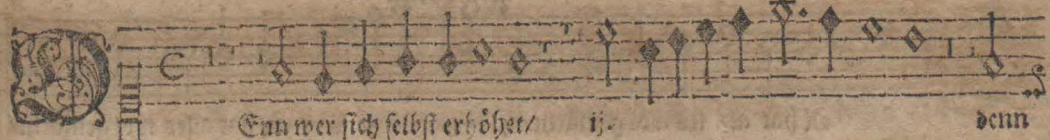 DEnn wer sich selbst erhöhet/ ij. denn